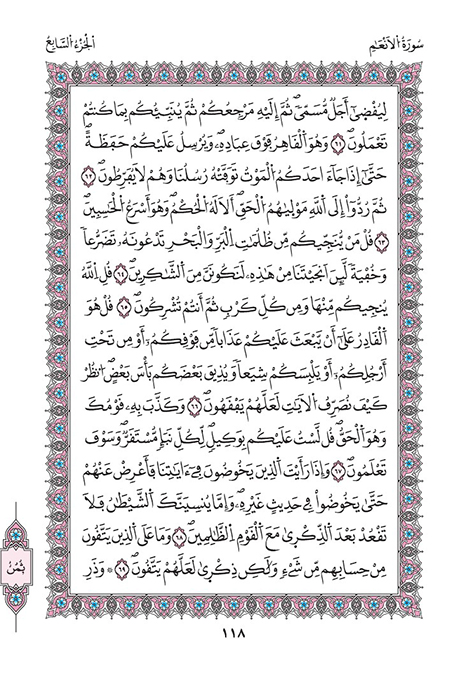 سُورَةُ الْأَنْعَامِ
الْجُزْءُ السَّابِعُ
لِيُقْضَىٰٓ أَجَلٌ مُّسَمًّىۖ ثُمَّ إِلَيْهِ مَرْجِعُكُمْ ثُمَّ يُنَبِّئُكُم بِمَا كُنتُمْ
تَعْمَلُونَۖ ٦١ وَهُوَ اَ۬لْقَاهِرُ فَوْقَ عِبَادِهِۦۖ وَيُرْسِلُ عَلَيْكُمْ حَفَظَةًۖ
حَتَّىٰٓ إِذَا جَآءَ احَدَكُمُ اُ۬لْمَوْتُ تَوَفَّتْهُ رُسُلُنَا وَهُمْ لَا يُفَرِّطُونَۖ ٦٢
ثُمَّ رُدُّوٓاْ إِلَى اَ۬للَّهِ مَوْلَىٰهُمُ اُ۬لْحَقِّۖ أَلَا لَهُ اُ۬لْحُكْمُ وَهُوَ أَسْرَعُ اُ۬لْحَٰسِبِينَۖ
٦٣ قُلْ مَنْ يُّنَجِّيكُم مِّن ظُلُمَٰتِ اِ۬لْبَرِّ وَالْبَحْرِ تَدْعُونَهُۥ تَضَرُّعاً
وَخُفْيَةً لَّئِنَ اَنجَيْتَنَا مِنْ هَٰذِهِۦ لَنَكُونَنَّ مِنَ اَ۬لشَّٰكِرِينَۖ ٦٤ قُلِ اِ۬للَّهُ
يُنجِيكُم مِّنْهَا وَمِن كُلِّ كَرْبٍ ثُمَّ أَنتُمْ تُشْرِكُونَۖ ٦٥ قُلْ هُوَ
اَ۬لْقَادِرُ عَلَىٰٓ أَنْ يَّبْعَثَ عَلَيْكُمْ عَذَاباً مِّن فَوْقِكُمُۥٓ أَوْ مِن تَحْتِ
أَرْجُلِكُمُۥٓ أَوْ يَلْبِسَكُمْ شِيَعاً وَيُذِيقَ بَعْضَكُم بَأْسَ بَعْضٍۖ اُ۟نظُرْ
كَيْفَ نُصَرِّفُ اُ۬لْأٓيَٰتِ لَعَلَّهُمْ يَفْقَهُونَۖ ٦٦ وَكَذَّبَ بِهِۦ قَوْمُكَ
وَهُوَ اَ۬لْحَقُّۖ قُل لَّسْتُ عَلَيْكُم بِوَكِيلٍۖ لِّكُلِّ نَبَإٖ مُّسْتَقَرٌّۖ وَسَوْفَ
تَعْلَمُونَۖ ٦٧ وَإِذَا رَأَيْتَ اَ۬لذِينَ يَخُوضُونَ فِےٓ ءَايَٰتِنَا فَأَعْرِضْ عَنْهُمْ
حَتَّىٰ يَخُوضُواْ فِے حَدِيثٍ غَيْرِهِۦۖ وَإِمَّا يُنسِيَنَّكَ اَ۬لشَّيْطَٰنُ فَلَا
تَقْعُدْ بَعْدَ اَ۬لذِّكْرَىٰ مَعَ اَ۬لْقَوْمِ اِ۬لظَّٰلِمِينَۖ ٦٨ وَمَا عَلَى اَ۬لذِينَ يَتَّقُونَ
مِنْ حِسَابِهِم مِّن شَےْءٖ وَلَٰكِن ذِكْرَىٰ لَعَلَّهُمْ يَتَّقُونَۖ ٦٩ ۞ وَذَرِ
ثُمُنُ
١١٨